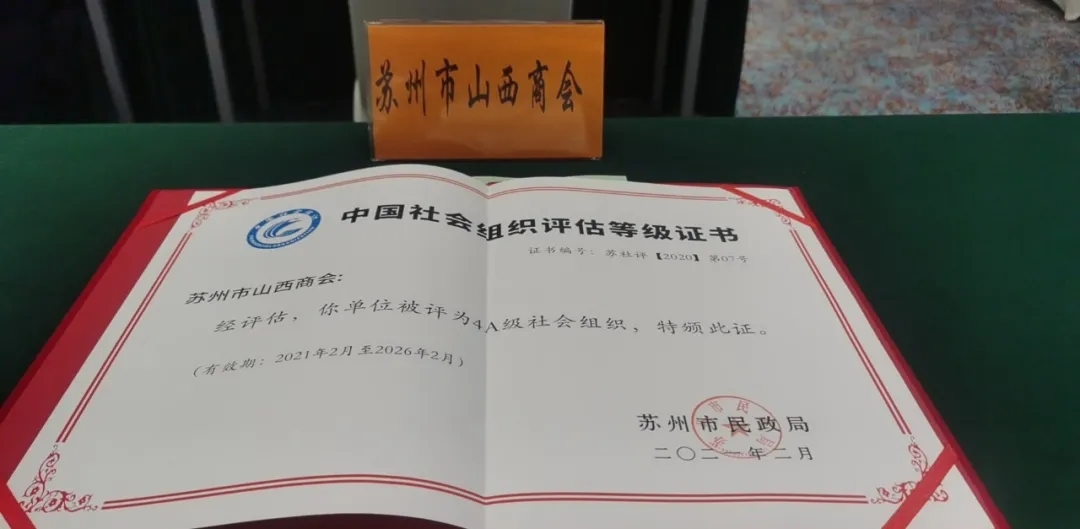 苏州市山西商会
中国社会组织评估等级证书
证书编号：苏社评【2020】第07号
苏州市山西商会:
经评估，你单位被评为4A级社会组织，特颁此证。
(有效期：2021年2月至2026年2月)
苏州市民政局
二〇二一年二月